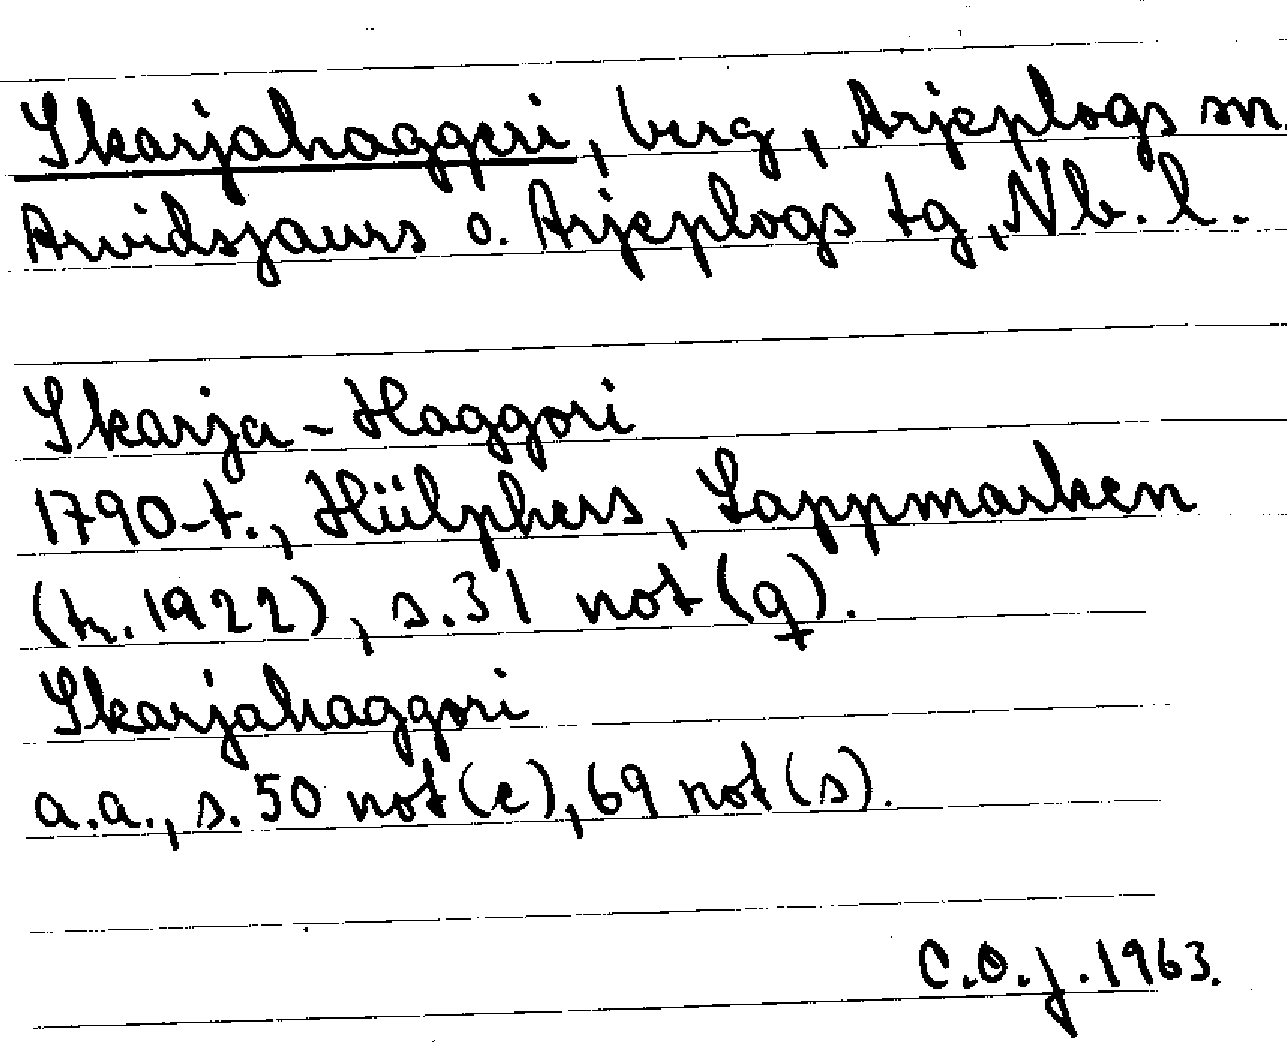 Skarjahaggeri, berg, Arjeplogs sn,
Arvidsjaurs o. Arjeplogs tg, Nb. l.
Skarja-Haggori
1790-t., Hülphers, Lappmarken
(tr. 1922), s. 31 not (q).
Skarjahaggori
a.a., s. 50 not (e), 69 not (s).
C.O.J. 1963.